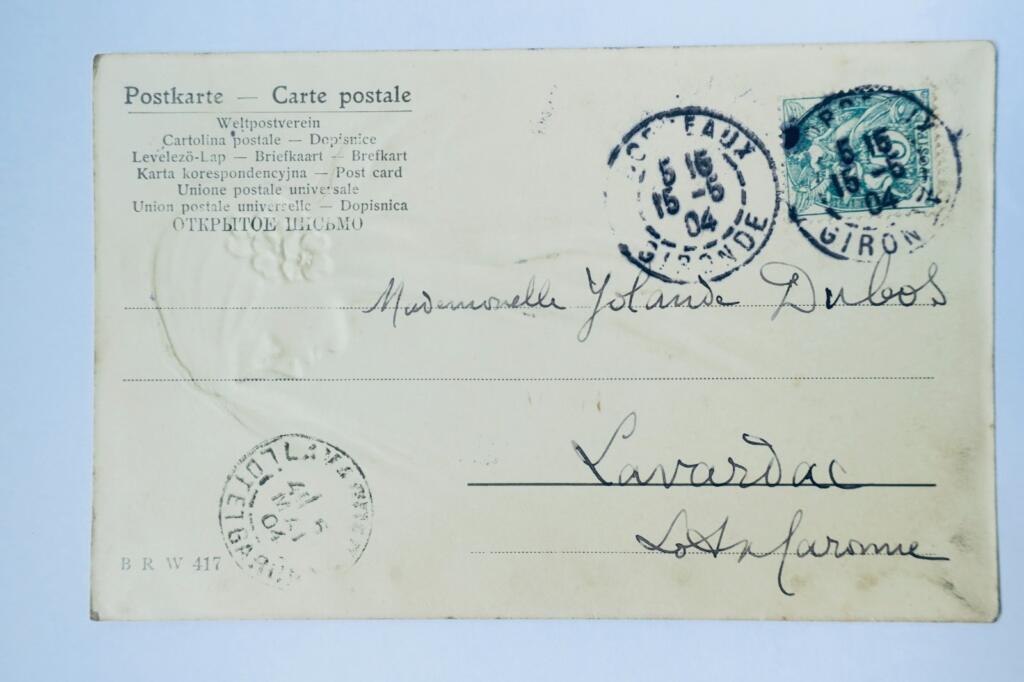 Postkarte — Carte postale
Weltpostverein
Cartolina postale — Dopisnice
Levelező-Lap — Briefkaart — Brefkart
Karta korespondencyjna — Post card
Unione postale universale
Union postale universelle — Dopisnica
ОТКРЫТОЕ ПИСЬМО
BORDEAUX
5 15
15 -5
04
GIRONDE
5 15
15 -5
04
GIRONDE
Mademoiselle Yolande Dubos
Lavardac
Lot & Garonne
LAVARDAC
MAI
04
LOT-ET-GARONNE
B R W 417